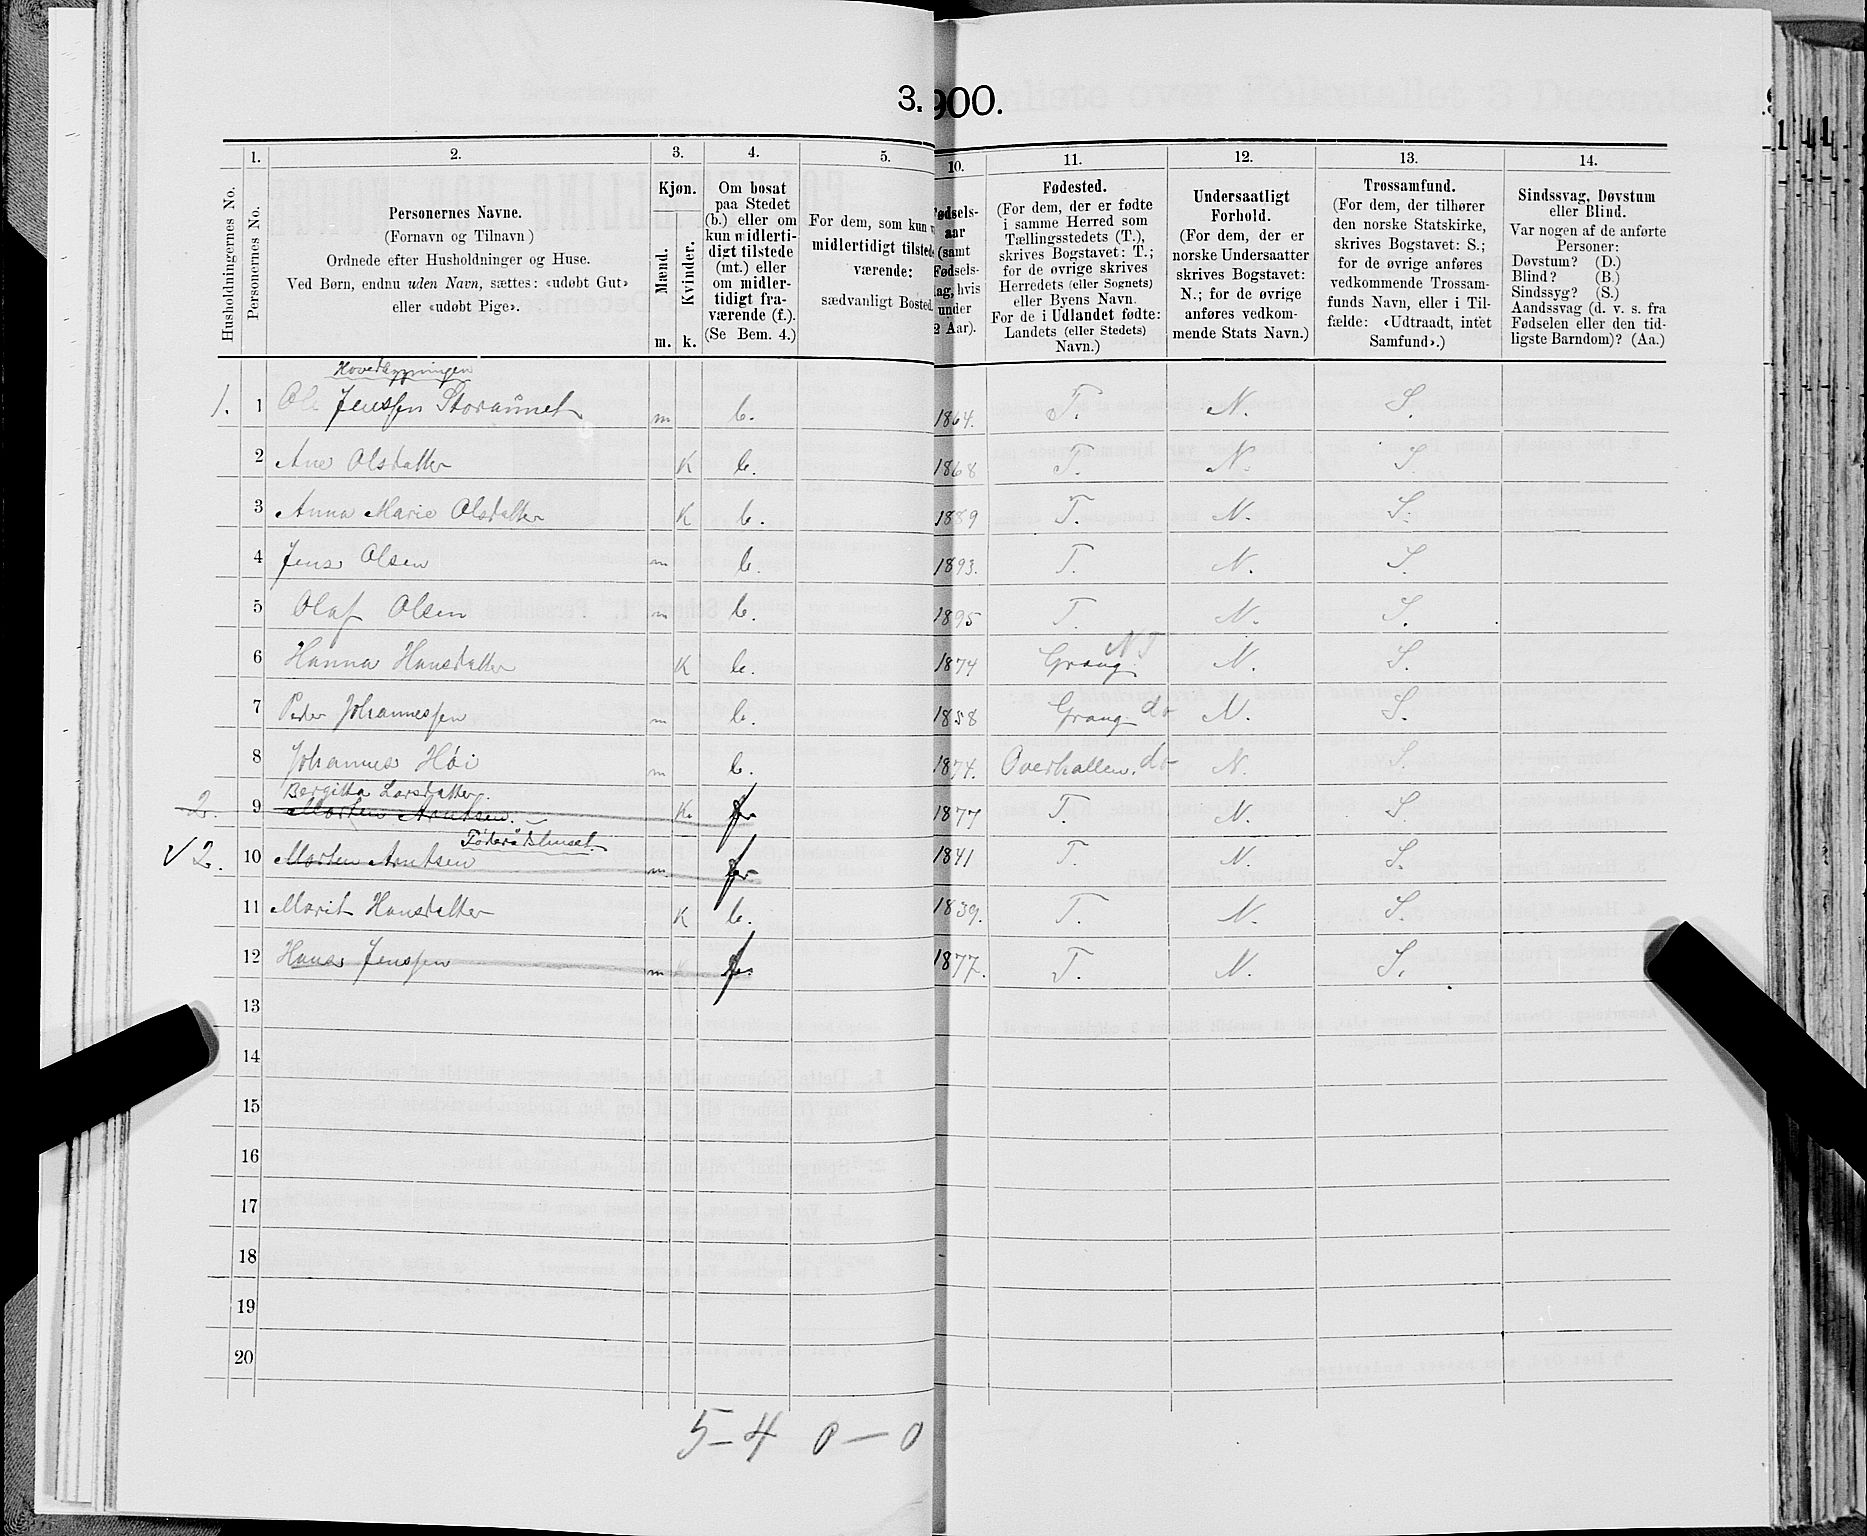 3.
900.
1. 2. 3. 4. 5. 10. 11. 12. 13. 14.
Husholdningernes No.
Personernes No.
Personernes Navne.
(Fornavn og Tilnavn)
Ordnede efter Husholdninger og Huse.
Ved Børn, endnu uden Navn, sættes: «udøbt Gut»
eller «udøbt Pige».
Kjøn.
Mænd.
Kvinder.
m. k.
Om bosat
paa Stedet
(b.) eller om
kun midlerti-
digt tilstede
(mt.) eller
om midler-
tidigt fra-
værende (f.).
(Se Bem. 4.)
For dem, som kun
midlertidigt tilstede
værende:
sædvanligt Bosted.
Fødsels-
aar
(samt
Fødsels-
dag, hvis
under
2 Aar).
Fødested.
(For dem, der er fødte
i samme Herred som
Tællingsstedets (T.),
skrives Bogstavet: T.;
for de øvrige skrives
Herredets (eller Sognets)
eller Byens Navn.
For de i Udlandet fødte:
Landets (eller Stedets)
Navn.)
Undersaatligt
Forhold.
(For dem, der er
norske Undersaatter
skrives Bogstavet:
N.; for de øvrige
anføres vedkom-
mende Stats Navn.)
Trossamfund.
(For dem, der tilhører
den norske Statskirke,
skrives Bogstavet: S.;
for de øvrige anføres
vedkommende Trossam-
funds Navn, eller i Til-
fælde: «Udtraadt, intet
Samfund».)
Sindssvag, Døvstum
eller Blind.
Var nogen af de anførte
Personer:
Døvstum? (D.)
Blind? (B.)
Sindssyg? (S.)
Aandssvag (d. v. s. fra
Fødselen eller den tid-
ligste Barndom)? (Aa.)
Hovedbygningen
1. 1 Ole Jenssen Storaunet m b. 1864. T. N. S.
2 Ane Olsdatter K b. 1868 T. N. S.
3 Anna Marie Olsdatter K b. 1889 T. N. S.
4 Jens Olsen m b. 1893. T. N. S.
5 Olaf Olsen m b. 1895 T. N. S.
6 Hanna Hansdatter K b. 1874 Grong N T N. S.
7 Peder Johannessen m b. 1858 Grong do N. S.
8 Johannes Høi m b. 1874. Overhallen. do N. S.
Bergitta Larsdatter.
2. 9 Morten Arntsen. K. f 1877 T. N. S.
Føderådshuset.
√ 2. 10 Morten Arntsen m f 1841 T. N. S.
11 Marit Hansdatter K b. 1839. T. N. S.
12 Hans Jenssen m f 1877. T. N. S.
13
14
15
16
17
18
19
20
5 – 4 0 – 0